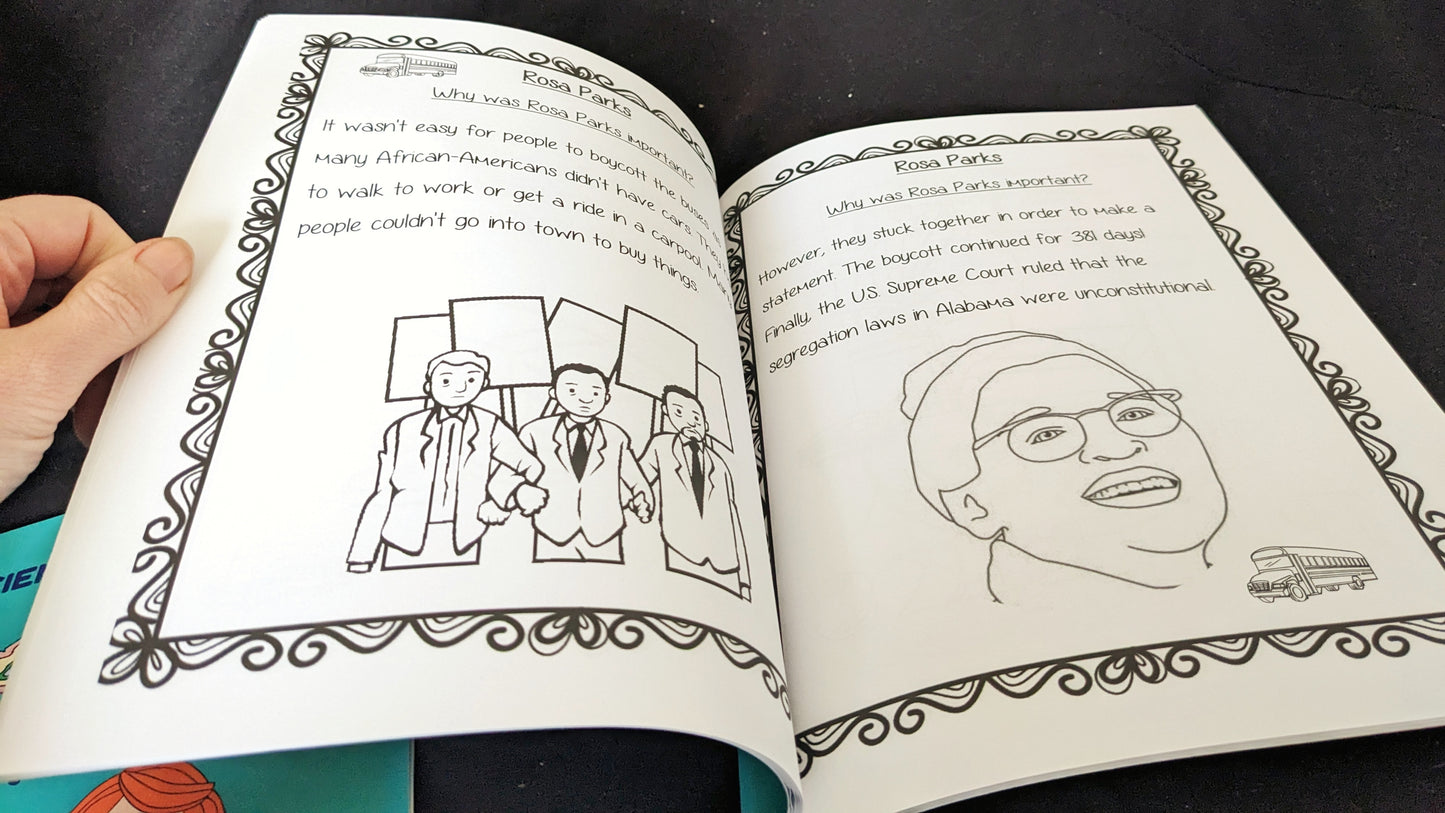 Rosa Parks
Why was Rosa Parks important?
It wasn't easy for people to boycott the buses
Many African-Americans didn't have cars. They
to walk to work or get a ride in a carpool.
people couldn't go into town to buy things.
Rosa Parks
Why was Rosa Parks important?
However, they stuck together in order to make a
statement. The boycott continued for 381 days!
Finally, the U.S. Supreme Court ruled that the
segregation laws in Alabama were unconstitutional.